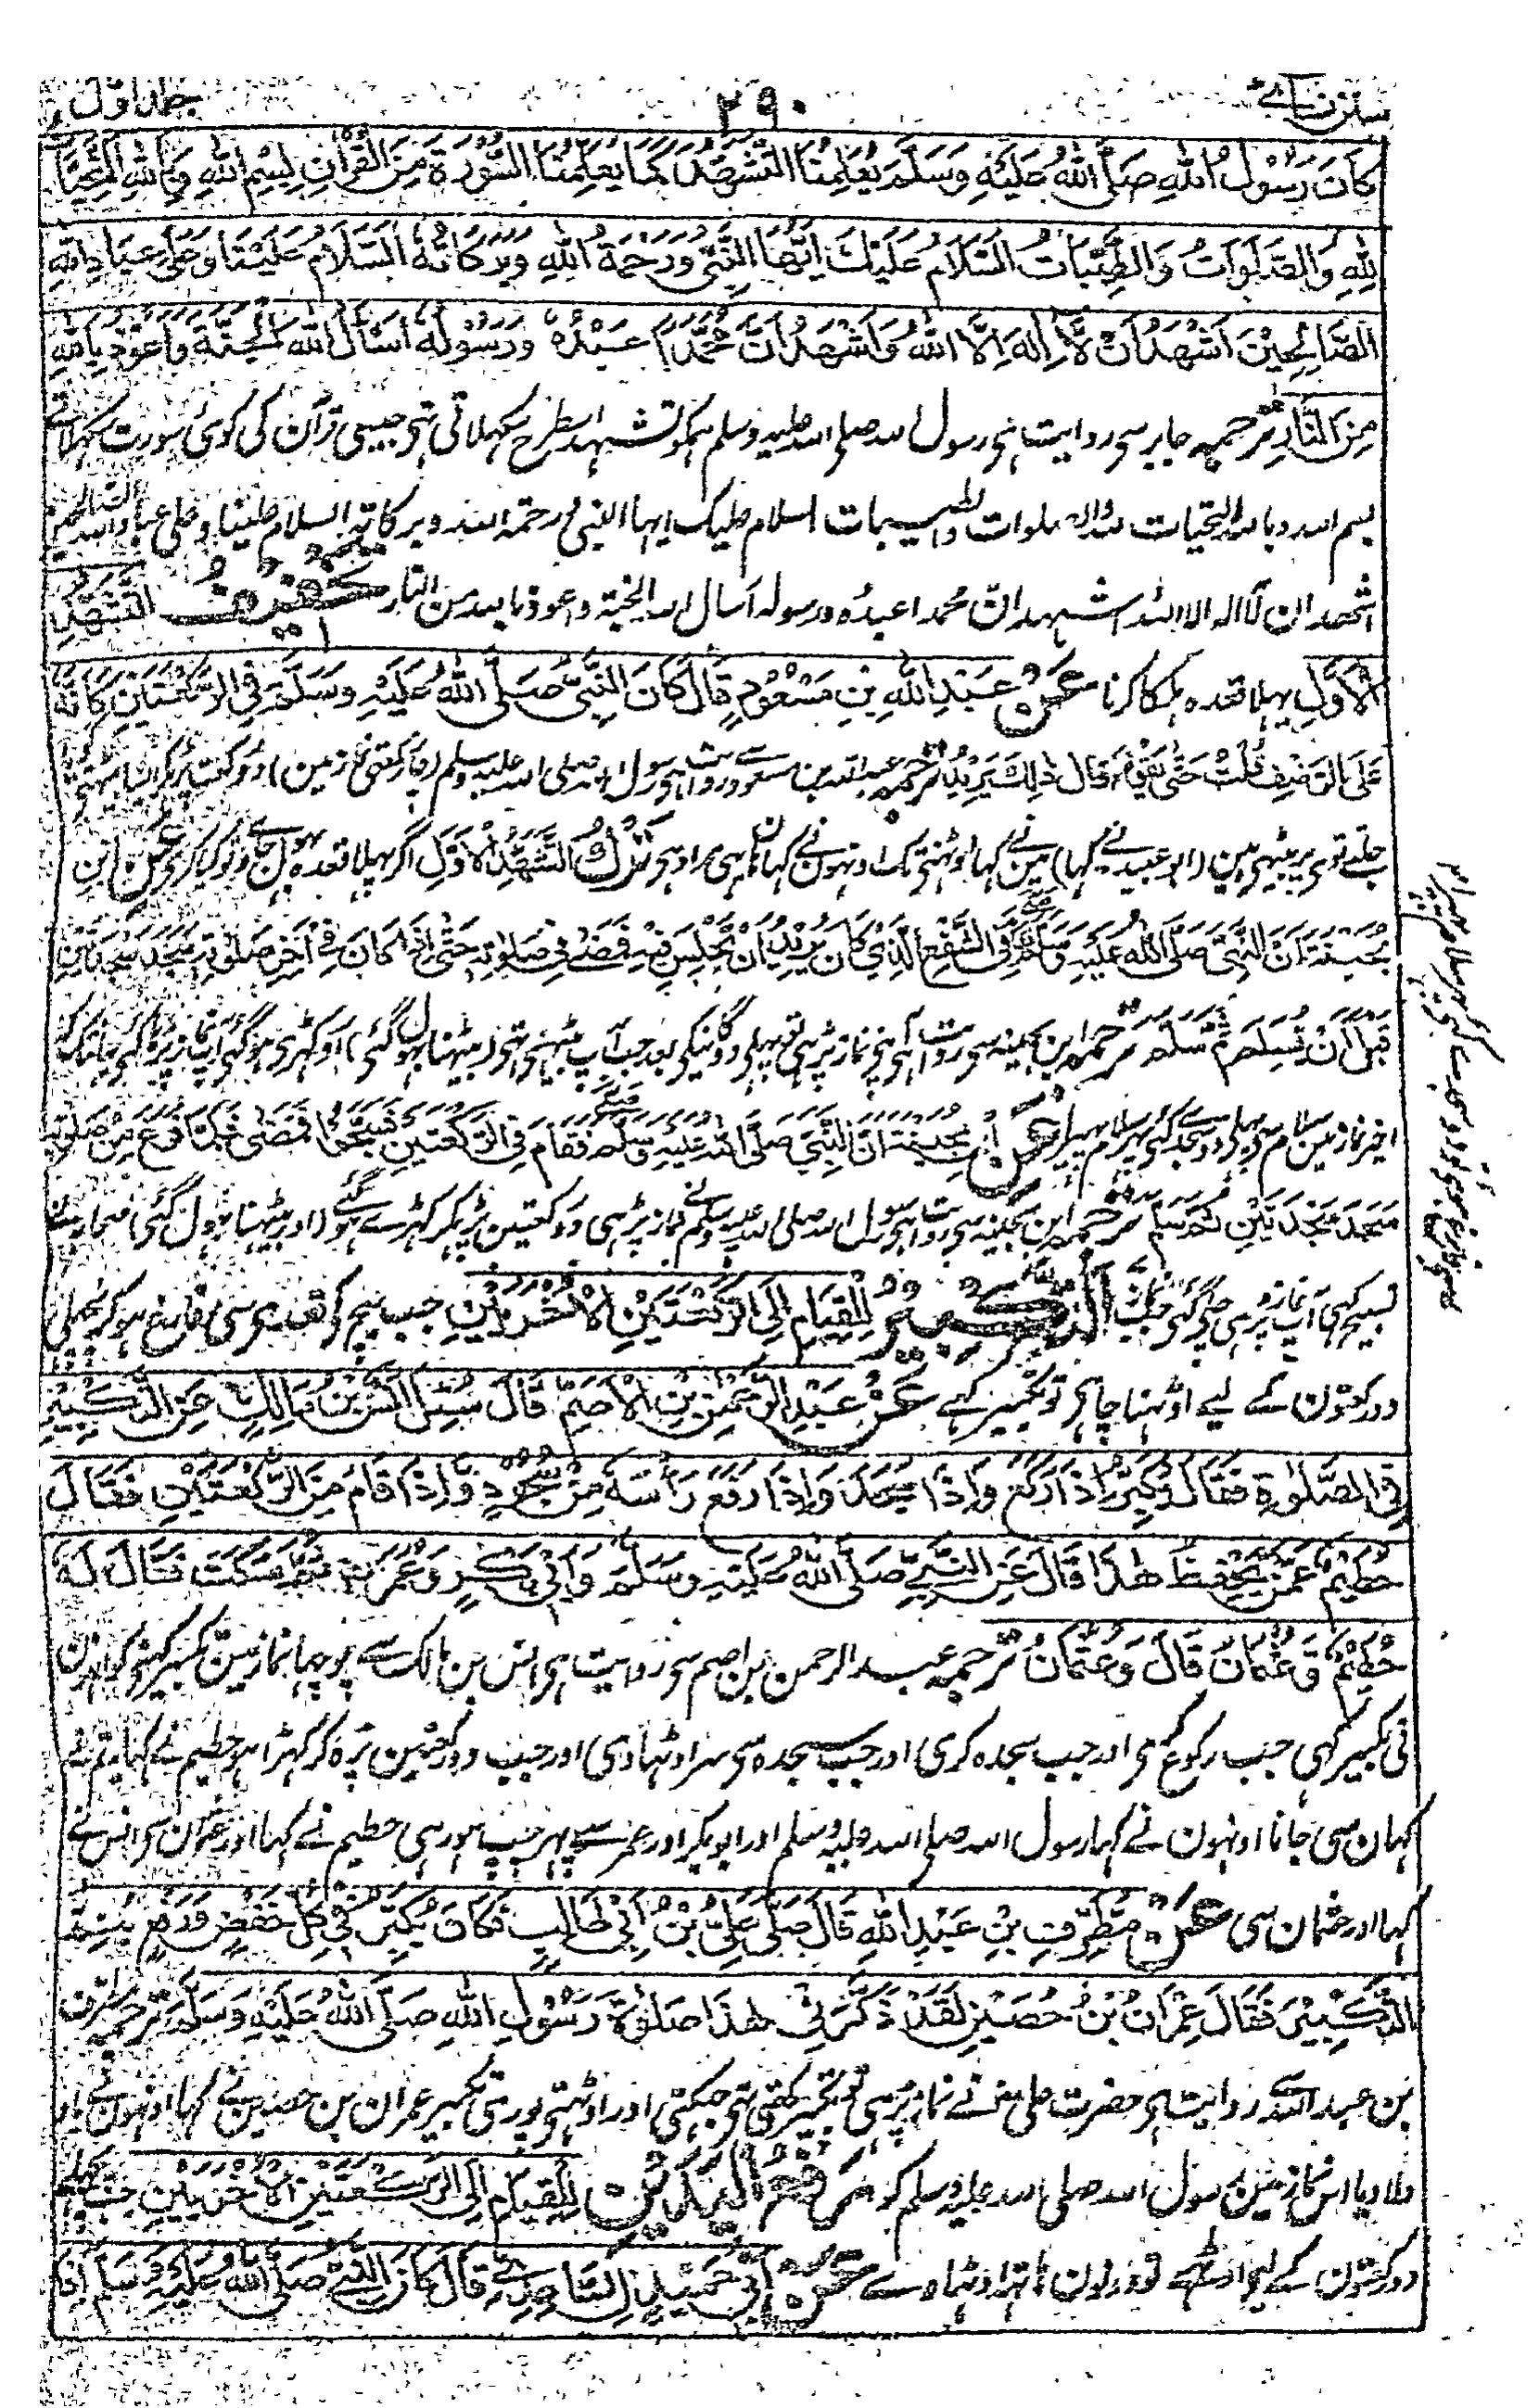 سنن نسائے ۲۹۰ جلد اول
كَانَ رَسُوْلُ اللهِ صَلَّى اللهُ عَلَيْهِ وَسَلَّمَ يُعَلِّمُنَا التَّشَهُّدَ كَمَا يُعَلِّمُنَا السُّوْرَةَ مِنَ الْقُرْاٰنِ بِسْمِ اللهِ وَبِاللهِ التَّحِيَّاتُ
لِلّٰهِ وَالصَّلَوَاتُ وَالطَّيِّبَاتُ السَّلَامُ عَلَيْكَ اَيُّهَا النَّبِيُّ وَرَحْمَةُ اللهِ وَبَرَكَاتُهُ السَّلَامُ عَلَيْنَا وَعَلٰى عِبَادِ اللهِ
الصَّالِحِيْنَ اَشْهَدُ اَنْ لَّا اِلٰهَ اِلَّا اللهُ وَاَشْهَدُ اَنَّ مُحَمَّدًا عَبْدُهُ وَرَسُوْلُهُ اَسْأَلُ اللهَ الْجَنَّةَ وَاَعُوْذُ بِاللهِ
مِنَ النَّارِ ترجمہ جابر سے روایت ہی رسول اللہ صلی اللہ علیہ وسلم ہمکو تشہد اسطرح سکہلاتی تہی جیسی قرآن کی کوئی سورت سکہلاتے
بسم اللہ وباللہ التحیات للہ والصلوات والطیبات السلام علیک ایہا النبی ورحمۃ اللہ وبرکاتہ السلام علینا وعلی عباد اللہ الصالحین
اشہد ان لا الہ الا اللہ اشہد ان محمدا عبدہ ورسولہ اسال اللہ الجنۃ واعوذ باللہ من النار تَخْفِيْفُ التَّشَهُّدِ
الْاَوَّلِ پہلا قعدہ ہلکا کرنا عَنْ عَبْدِ اللهِ بْنِ مَسْعُوْدٍ قَالَ كَانَ النَّبِيُّ صَلَّى اللهُ عَلَيْهِ وَسَلَّمَ فِي الرَّكْعَتَيْنِ كَاَنَّهُ
عَلَى الرَّضْفِ قُلْتُ حَتّٰى يَقُوْمَ قَالَ ذٰلِكَ يُرِيْدُ ترجمہ عبد اللہ بن مسعود سے روایت ہی رسول اللہ صلی اللہ علیہ وسلم (چار رکعتی نماز مین) دو رکعت پڑہکر ایسا بیٹہتی
جلتے توے پر بیٹہی ہین (ابو عبید نے کہا) مین نے کہا اوٹہنے تک اونہون نے کہا ہان یہی مراد ہی تَرْكُ التَّشَهُّدِ الْاَوَّلِ اگر پہلا قعدہ بہول جاوے تو کیا کری عَنِ ابْنِ
بُحَيْنَةَ اَنَّ النَّبِيَّ صَلَّى اللهُ عَلَيْهِ وَسَلَّمَ صَلّٰى فَقَامَ فِي الشَّفْعِ الَّذِيْ كَانَ يُرِيْدُ اَنْ يَّجْلِسَ فِيْهِ فَمَضٰى فِيْ صَلٰوتِهٖ حَتّٰى اِذَا كَانَ فِيْ اٰخِرِ صَلٰوتِهٖ سَجَدَ سَجْدَتَيْنِ
قَبْلَ اَنْ يُّسَلِّمَ ثُمَّ سَلَّمَ ترجمہ ابن بحینہ سے روایت ہی آپنے نماز پڑہی تو پہلی دوگانیکی بعد جب آپ بیٹہتی تہی (بیٹہنا بہول گئی) اور کہڑی ہوگئی آپ نماز پڑہا کئی یہانتک کہ
اخیر نماز مین سلام سے پہلی دو سجدے کئی پہر سلام پہیرا عَنِ ابْنِ بُحَيْنَةَ اَنَّ النَّبِيَّ صَلَّى اللهُ عَلَيْهِ وَسَلَّمَ صَلّٰى فَقَامَ فِي الرَّكْعَتَيْنِ فَسَبَّحُوْا فَمَضٰى فَلَمَّا فَرَغَ مِنْ صَلٰوتِهٖ
سَجَدَ سَجْدَتَيْنِ ثُمَّ سَلَّمَ ترجمہ ابن بحینہ سے روایت ہی رسول اللہ صلی اللہ علیہ وسلم نے نماز پڑہی دو رکعتین پڑہکر کہڑے ہو گئے (اور بیٹہنا بہول گئی) صحابہ نے
تسبیح کہی آپ نماز پڑہی چلی گئی التَّكْبِيْرُ لِلْقِيَامِ اِلَى الرَّكْعَتَيْنِ الْاُخْرَيَيْنِ جب بیچ کو قعدہ سی فارغ ہو کر پچہلی
دو رکعتون کے لیے اوٹہنا چاہے تو تکبیر کہے عَنْ عَبْدِ الرَّحْمٰنِ بْنِ الْاَصَمِّ قَالَ سُئِلَ اَنَسُ بْنُ مَالِكٍ عَنِ التَّكْبِيْرِ
فِي الصَّلٰوةِ فَقَالَ يُكَبِّرُ اِذَا رَكَعَ وَاِذَا سَجَدَ وَاِذَا رَفَعَ رَأْسَهُ مِنَ السُّجُوْدِ وَاِذَا قَامَ مِنَ الرَّكْعَتَيْنِ فَقَالَ
حُطَيْمٌ عَمَّنْ تَحْفَظُ هٰذَا قَالَ عَنِ النَّبِيِّ صَلَّى اللهُ عَلَيْهِ وَسَلَّمَ وَاَبِيْ بَكْرٍ وَعُمَرَ ثُمَّ سَكَتَ فَقَالَ لَهُ
حُطَيْمٌ وَعُثْمَانَ قَالَ وَعُثْمَانَ ترجمہ عبد الرحمن بن اصم سے روایت ہی انس بن مالک سے پوچہا نماز مین تکبیر کہنے کو اونہون
نی تکبیر کہی جب رکوع کری اور جب سجدہ کری اور جب سجدہ سی سر اوٹہادی اور جب دو رکعتین پڑہ کر کہڑا ہو حطیم نے کہا یہ تمنے
کہان سی جانا اونہون نے کہا رسول اللہ صلی اللہ علیہ وسلم اور ابوبکر اور عمر سے پہر چپ ہو رہی حطیم نے کہا اور عثمان سی انس نے
کہا اور عثمان سی عَنْ مُطَرِّفِ بْنِ عَبْدِ اللهِ قَالَ صَلّٰى عَلِيُّ بْنُ اَبِيْ طَالِبٍ فَكَانَ يُكَبِّرُ فِيْ كُلِّ خَفْضٍ وَرَفْعٍ يُتِمُّ
التَّكْبِيْرَ فَقَالَ عِمْرَانُ بْنُ حُصَيْنٍ لَقَدْ ذَكَّرَنِيْ هٰذَا صَلٰوةَ رَسُوْلِ اللهِ صَلَّى اللهُ عَلَيْهِ وَسَلَّمَ ترجمہ مطرف
بن عبد اللہ سے روایت ہی حضرت علی نے نماز پڑہی تو تکبیر کہتی تہی جہکتی اور اوٹہتی پوری تکبیر عمران بن حصین نے کہا اونہون نے یاد
دلا دیا اس نماز مین رسول اللہ صلی اللہ علیہ وسلم کو رَفْعُ الْيَدَيْنِ لِلْقِيَامِ اِلَى الرَّكْعَتَيْنِ الْاُخْرَيَيْنِ جب پچہلی
دو رکعتون کے لیے اوٹہے تو دونون ہاتہ اوٹہاوے عَنْ اَبِيْ حُمَيْدٍ السَّاعِدِيِّ قَالَ كَانَ النَّبِيُّ صَلَّى اللهُ عَلَيْهِ وَسَلَّمَ اِذَا